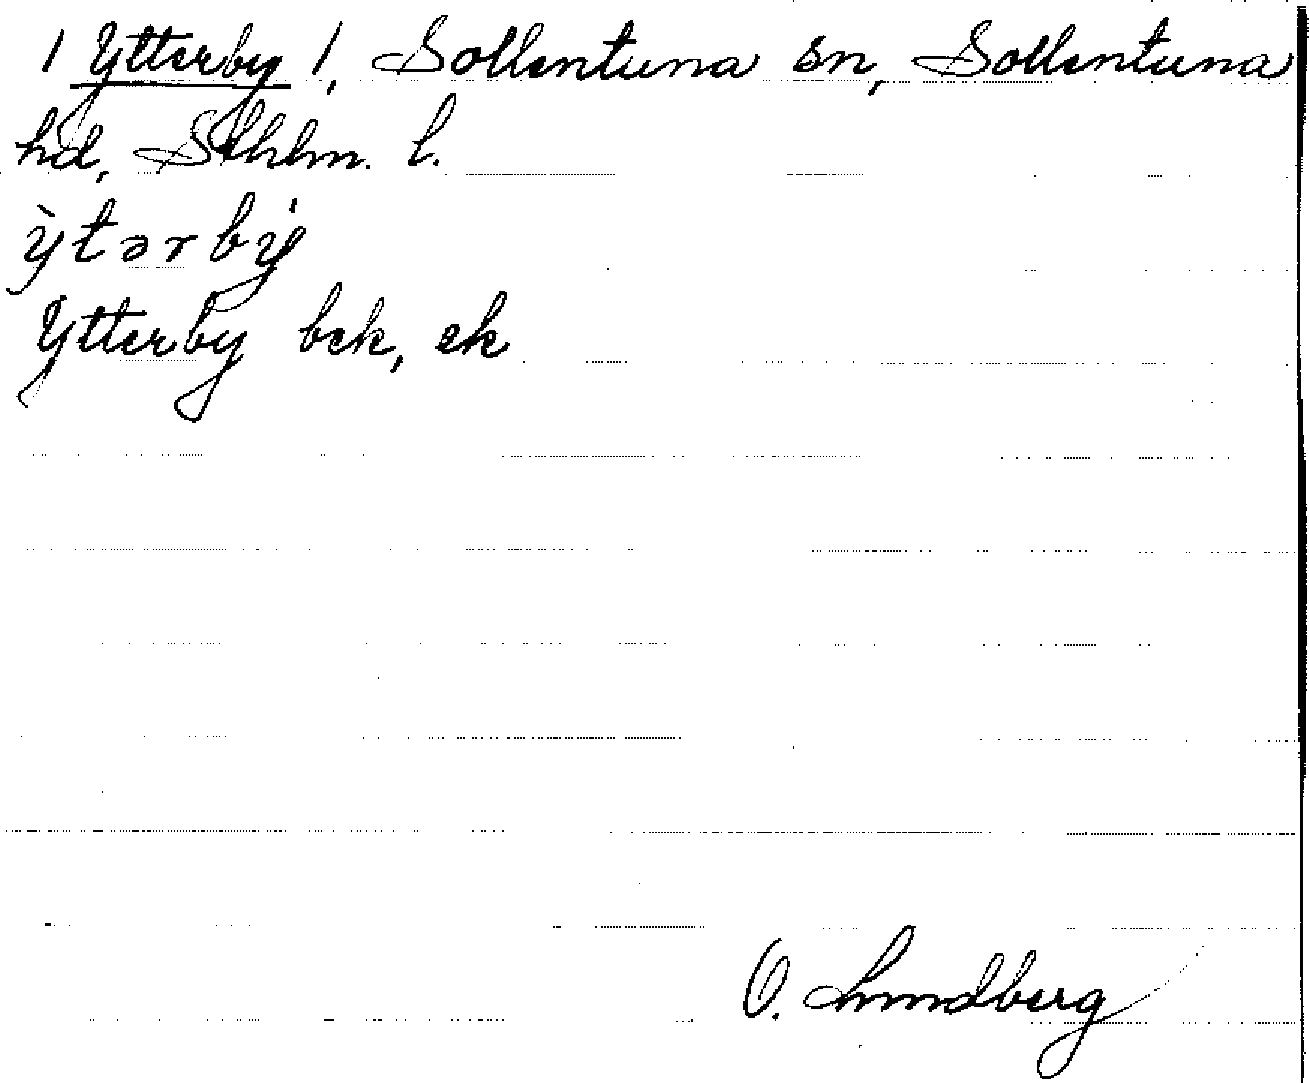 / Ytterby /, Sollentuna sn, Sollentuna
hd, Sthlm. l.
ỳtərbý
Ytterby bek, ek
O. Lundberg